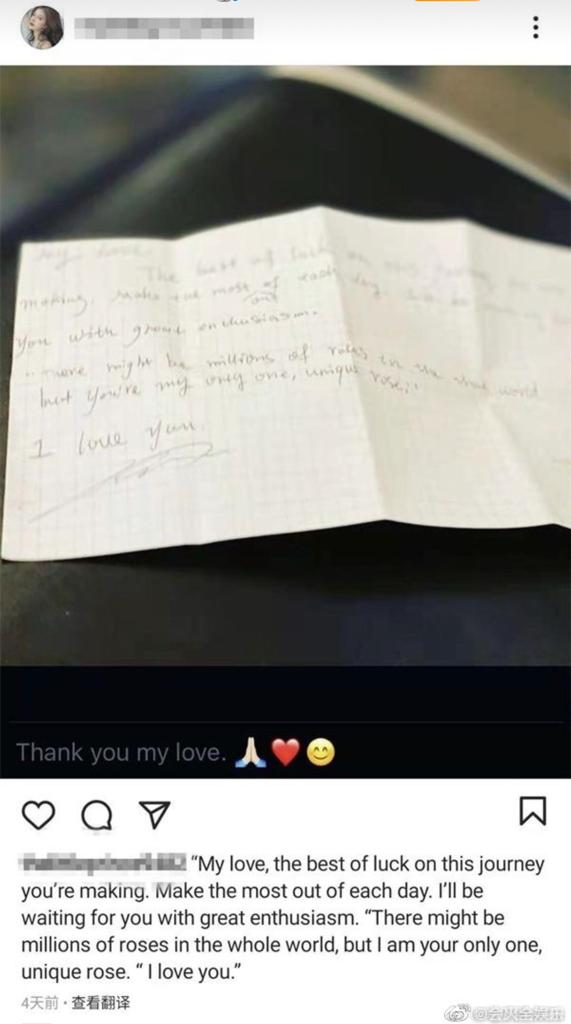 My Love
The best of luck on this
making. Make the most of each day.
out
you with great enthusiasm.
"There might be millions of roses in the world
but you're my only one, unique rose."
I love you.
Thank you my love. 🙏🏻❤️😊
“My love, the best of luck on this journey
you’re making. Make the most out of each day. I’ll be
waiting for you with great enthusiasm. “There might be
millions of roses in the whole world, but I am your only one,
unique rose. “ I love you.”
4天前 · 查看翻译